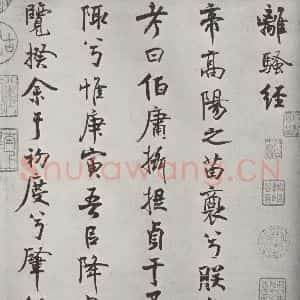 離騷经
帝高陽之苗裔兮朕
考曰伯庸攝提貞于孟
陬兮惟庚寅吾㠯降
覽揆余于初度兮肇
Shufawang.CN